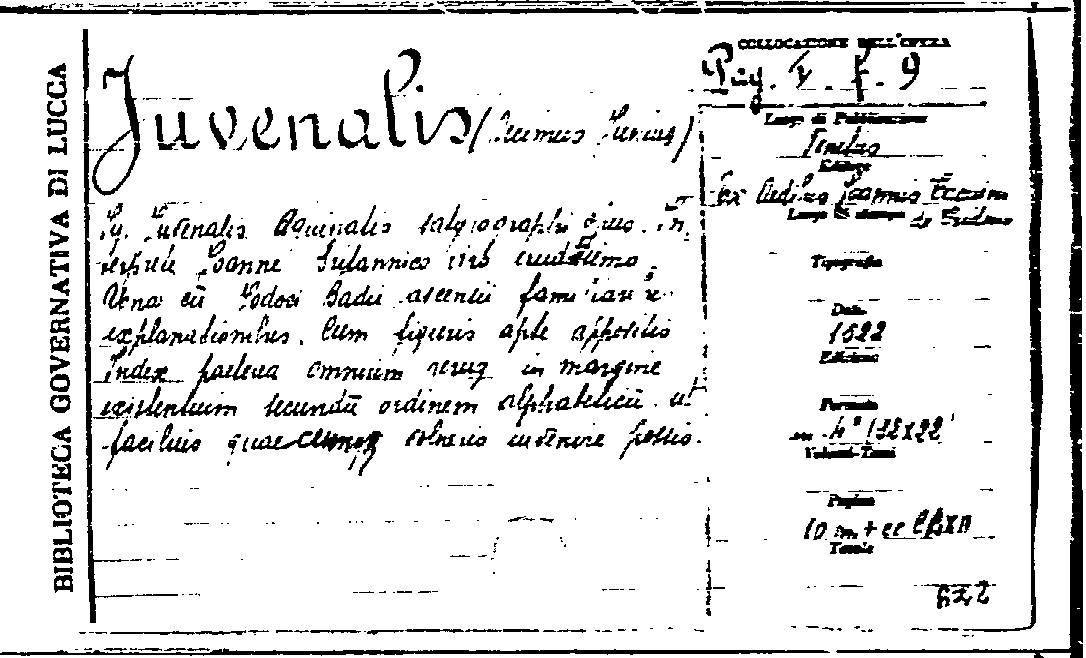 BIBLIOTECA GOVERNATIVA DI LUCCA
Juvenalis (Decimus Junius)
Iu. Juvenalis Aquinatis satyrographi opus. In
terprete Joanne Britannico viro eruditissimo.
Una cū Jodoci Badii ascensii familiari
explanationibus. Cum figuris apte appositis
Index praeterea omnium rerum in margine
existentium secundū ordinem alphabeticū ut
facilius quae volueris invenire possis.
COLLOCAZIONE DELL'OPERA
V. f. 9
Luogo di Pubblicazione
Venetiis
Editore
Ex Aedibus Joannis
Luogo di stampa
de Tridino
Tipografia
Data
1522
Edizione
Formato
in 4° 132x22
Volumi-Tomi
Pagine
10 m +
Tavole
622